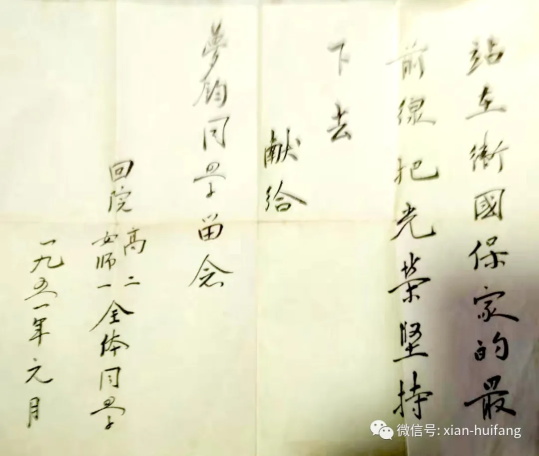 站在衛國保家的最
前線把光荣坚持
下去
献给
夢鈞同学留念
回院高二
女师一全体同学
一九五一年元月
微信号: xian-huifang